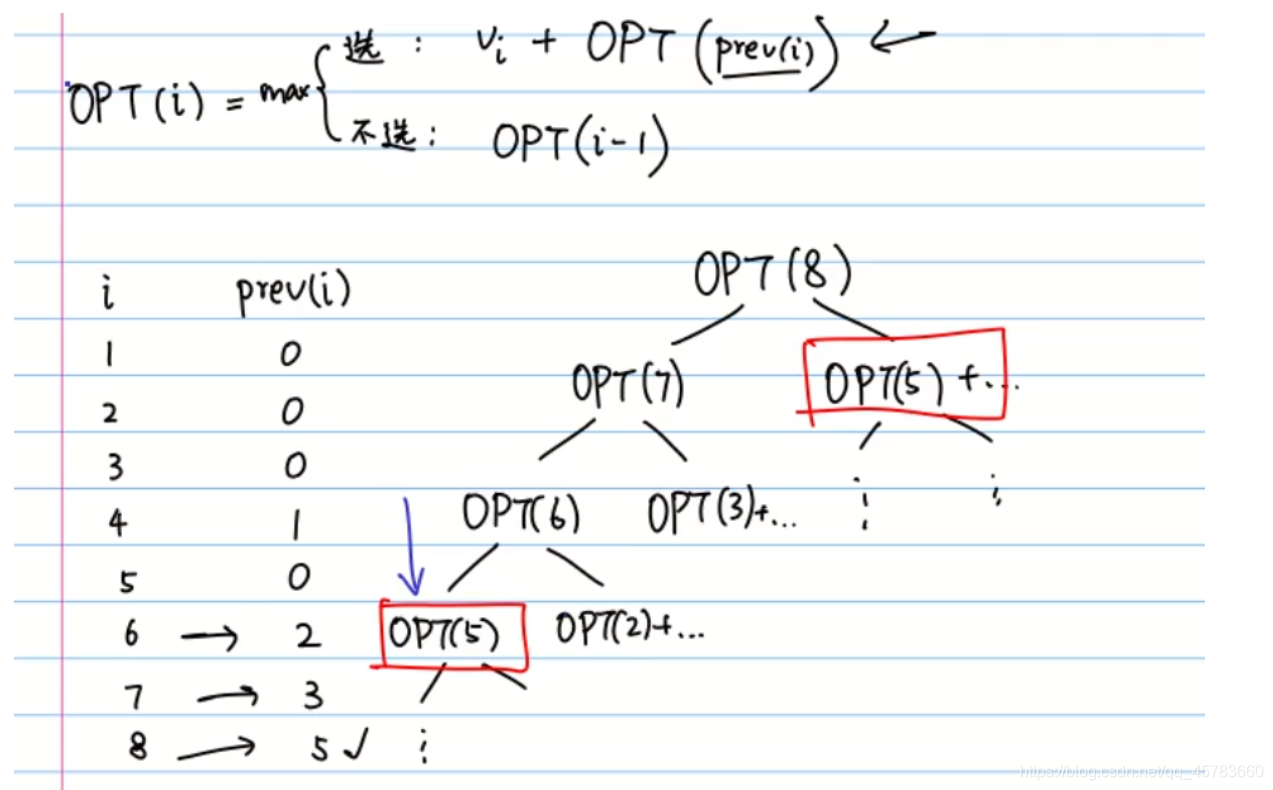 选 : vᵢ + OPT (prev(i)) ←
OPT(i) = max {
不选 : OPT(i-1)
i prev(i)
1 0
2 0
3 0
4 1
5 0
6 → 2
7 → 3
8 → 5 ✓
OPT(8)
OPT(7) OPT(5) + ...
OPT(6) OPT(3)+... ⋮ ⋮
OPT(5) OPT(2)+...
⋮
https://blog.csdn.net/qq_45783660